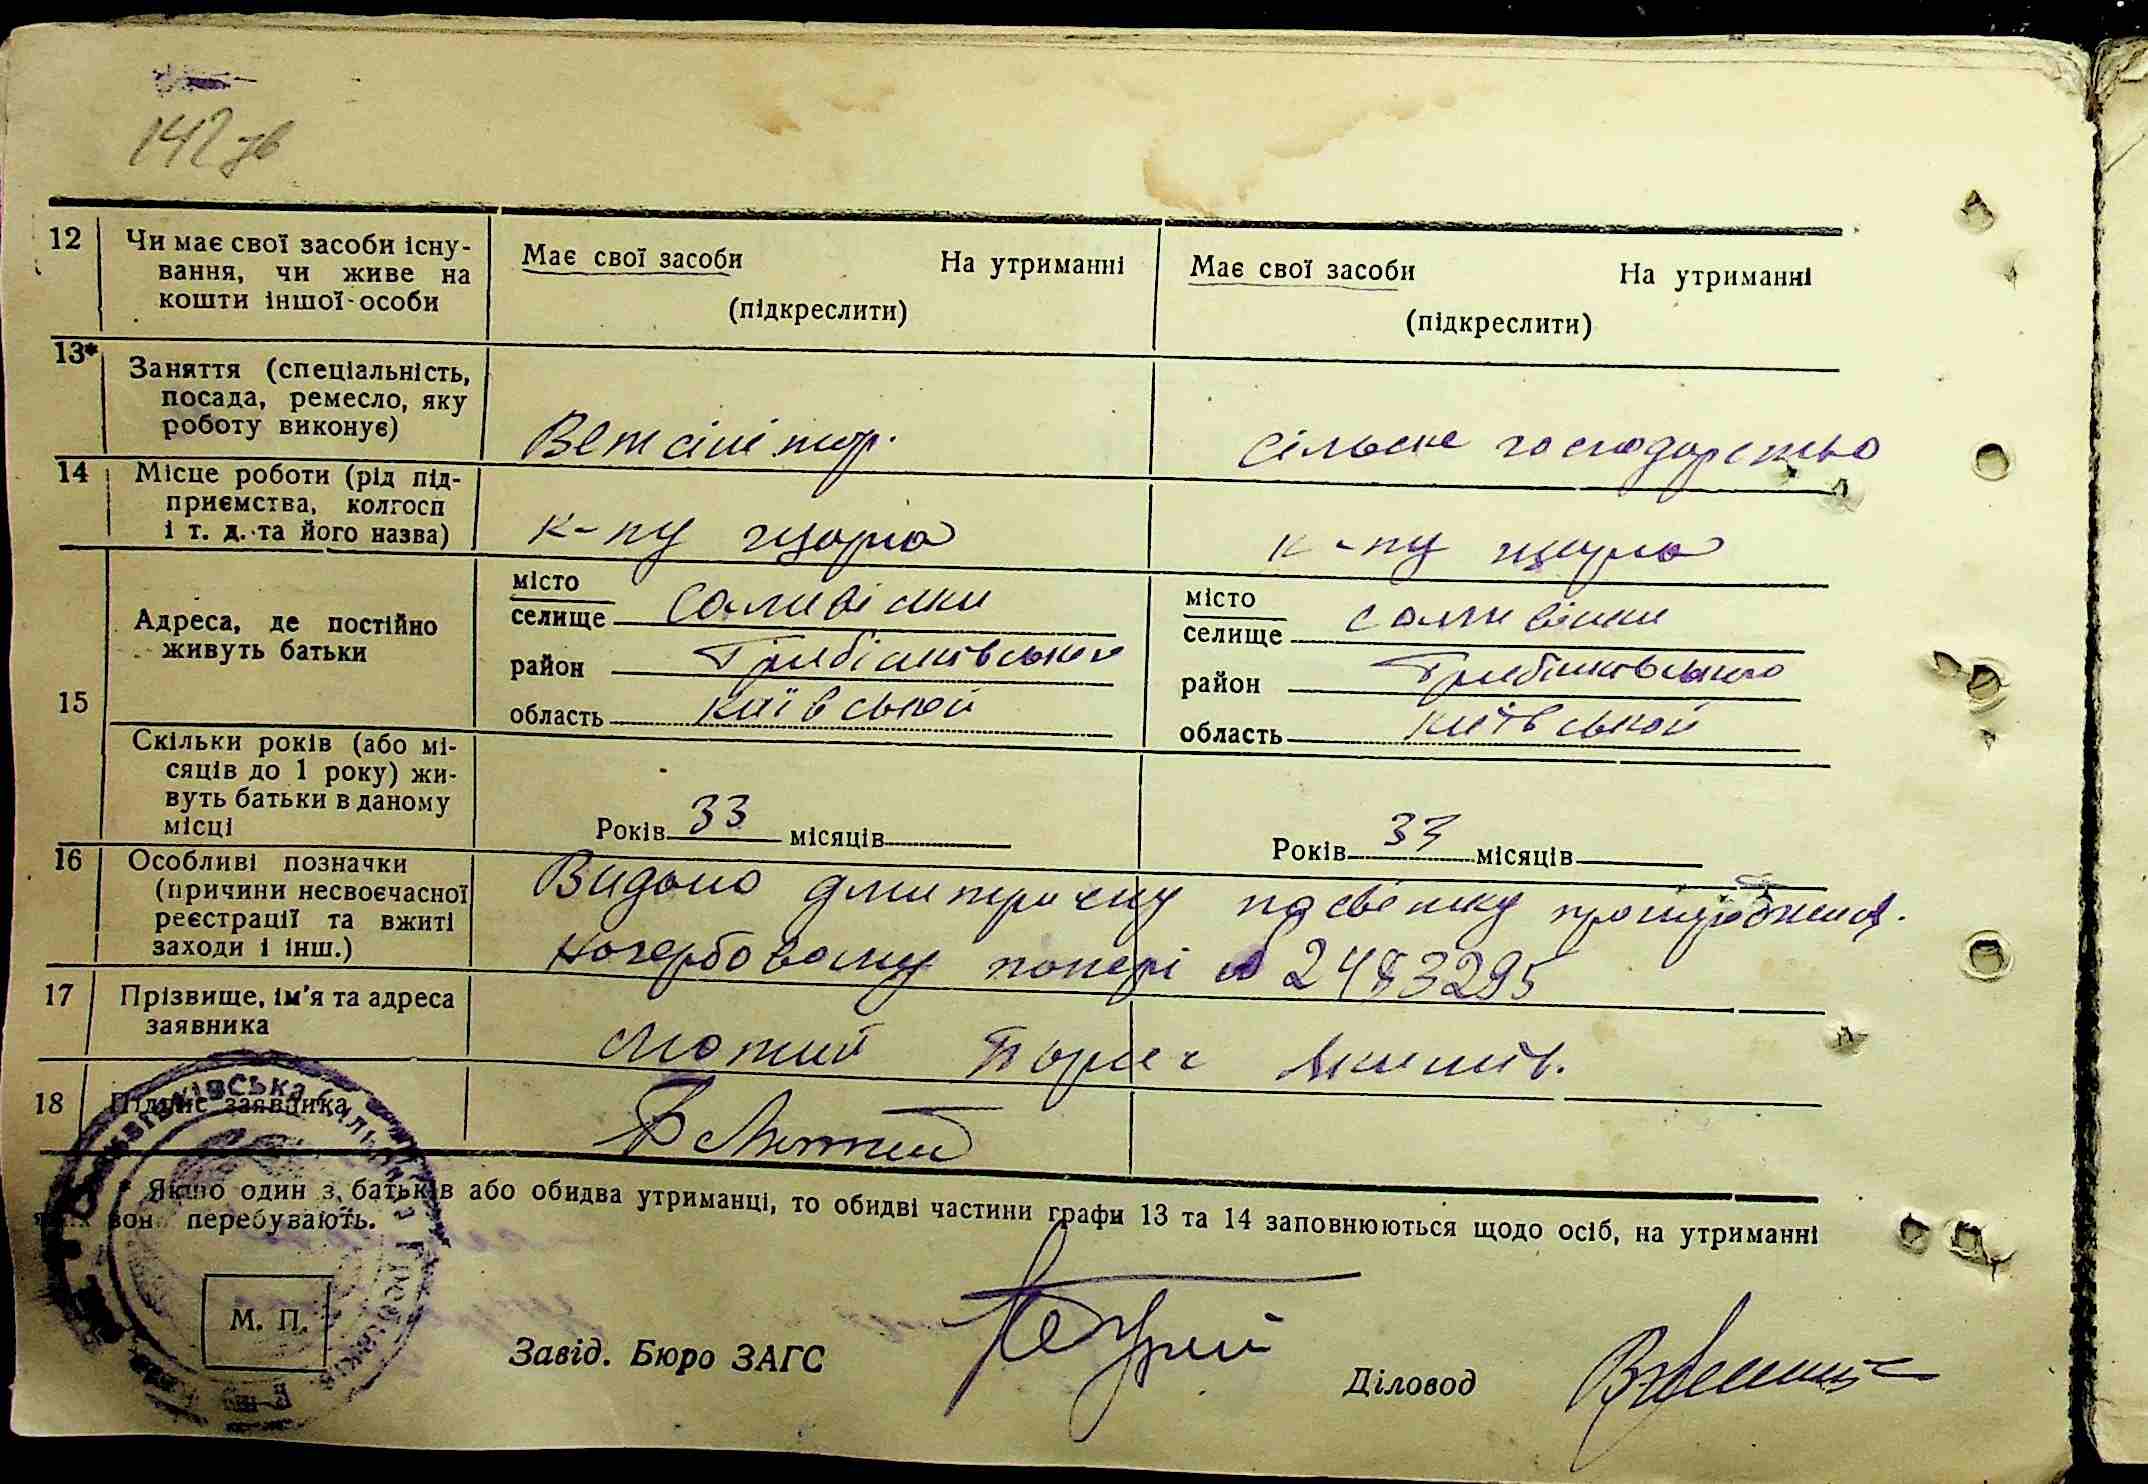 142 зв
12 Чи має свої засоби існу-
вання, чи живе на
кошти іншої особи
Має свої засоби На утриманні
(підкреслити)
Має свої засоби На утриманні
(підкреслити)
13* Заняття (спеціальність,
посада, ремесло, яку
роботу виконує)
Ветсанітар.
сільське господарство
14 Місце роботи (рід під-
приємства, колгосп
і т. д. та його назва)
к-пу щорса
к-пу щорса
15 Адреса, де постійно
живуть батьки
місто
селище Саливінки
район Гребінківського
область Київської
місто
селище Саливінки
район Гребінківського
область Київської
Скільки років (або мі-
сяців до 1 року) жи-
вуть батьки в даному
місці
Років 33 місяців
Років 33 місяців
16 Особливі позначки
(причини несвоєчасної
реєстрації та вжиті
заходи і інш.)
Видано дмитрику посвідку про
на гербовому папері 2483295
17 Прізвище, ім'я та адреса
заявника
Лютий Борис
18 Підпис заявника
Б Лютий
* Якщо один з батьків або обидва утриманці, то обидві частини графи 13 та 14 заповнюються щодо осіб, на утриманні
яких вони перебувають.
М. П.
Завід. Бюро ЗАГС
Діловод